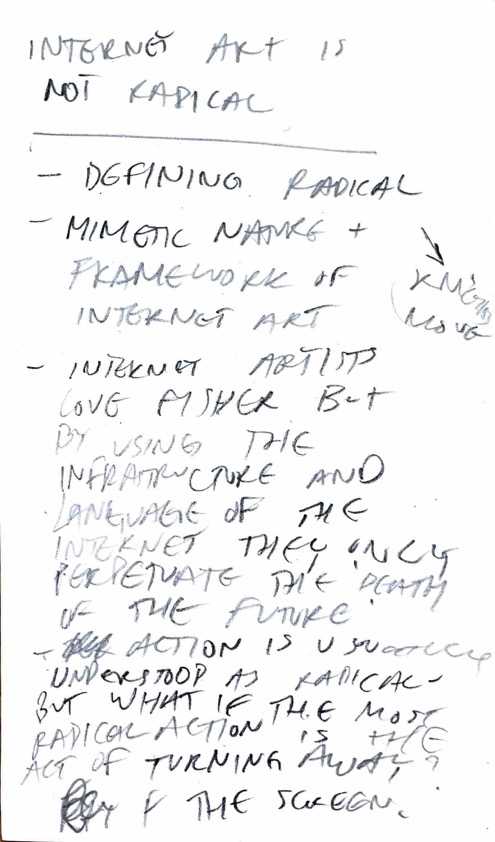 INTERNET ART IS
NOT RADICAL
- DEFINING RADICAL
- MIMETIC NATURE +
FRAMEWORK OF
INTERNET ART
MOVE
- INTERNET ARTISTS
LOVE FISHER BUT
BY USING THE
INFRATRUCTURE AND
LANGUAGE OF THE
INTERNET THEY ONLY
PERPETUATE THE DEATH
OF THE FUTURE
- ACTION IS USUALLY
UNDERSTOOD AS RADICAL -
BUT WHAT IF THE MOST
RADICAL ACTION IS THE
ACT OF TURNING AWAY?
THE SCREEN.